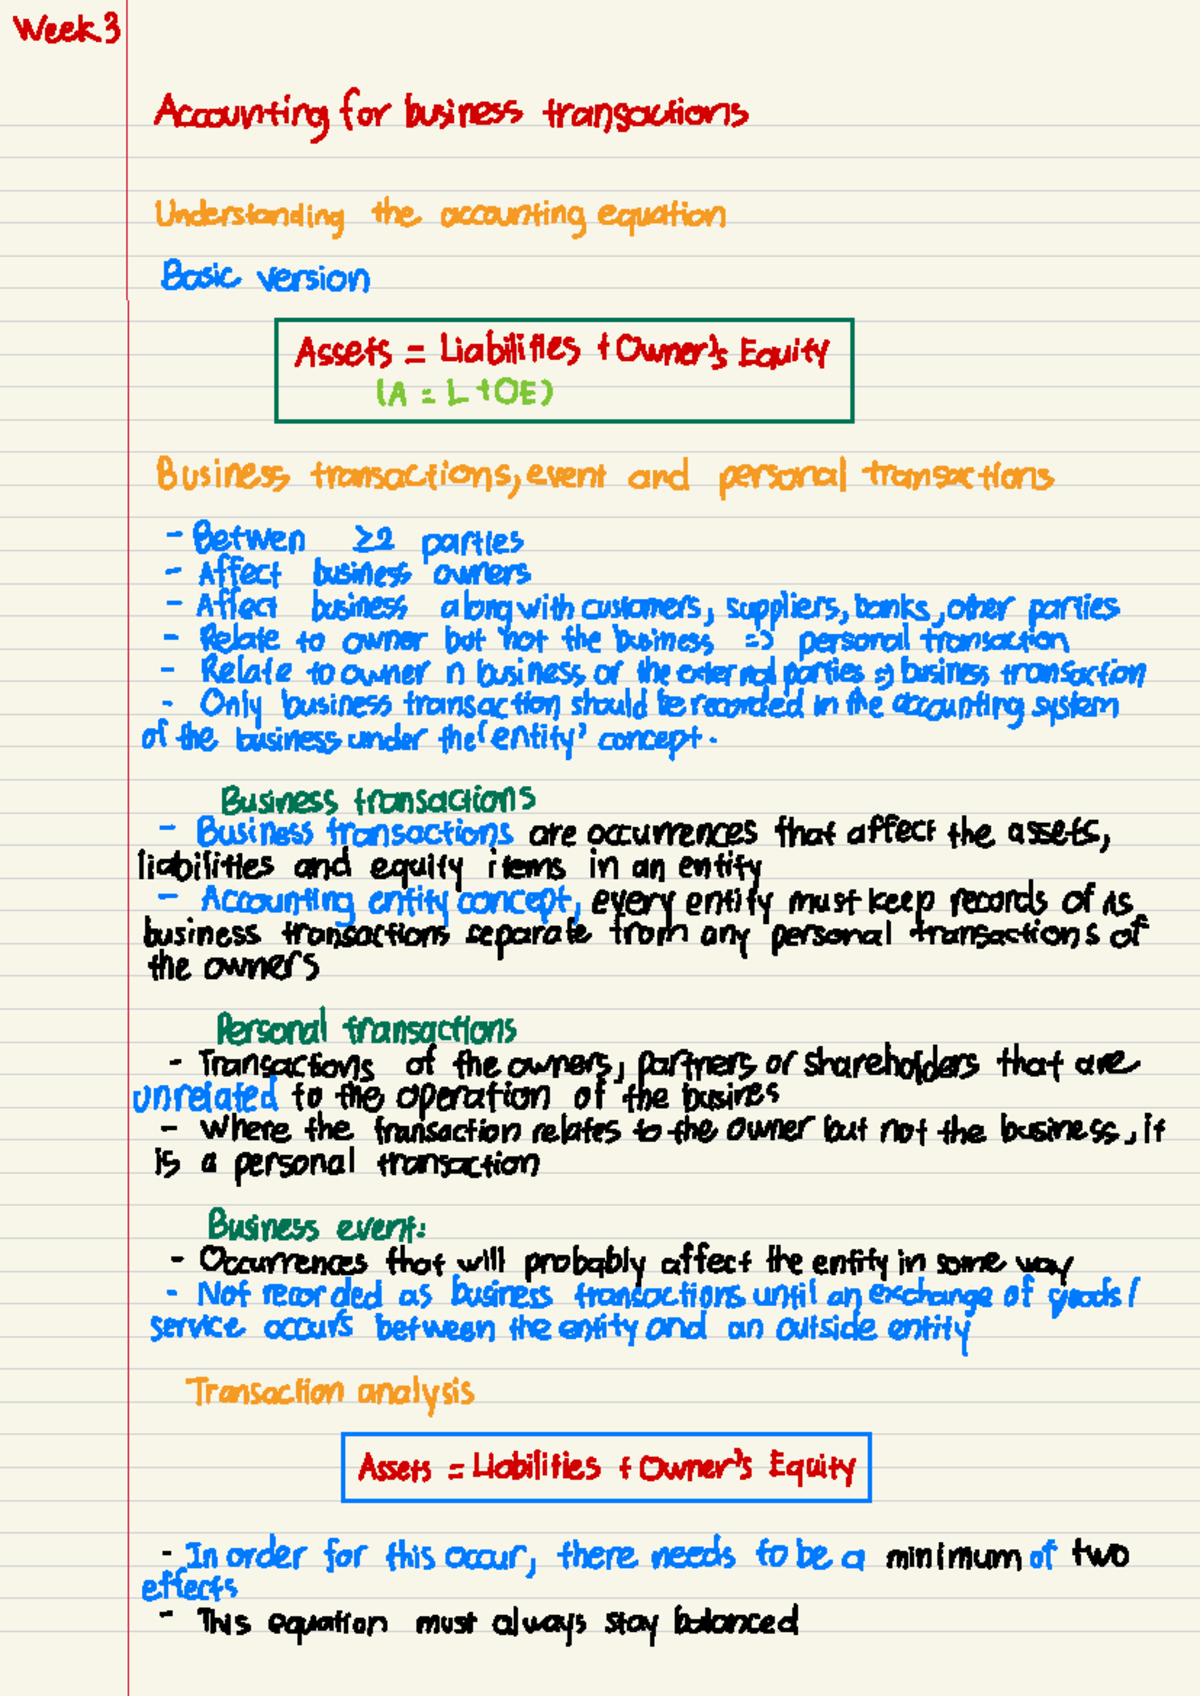 Week 3
Accounting for business transactions
Understanding the accounting equation
Basic version
Assets = Liabilities + Owner's Equity
(A = L + OE)
Business transactions, event and personal transactions
- Betwen ≥2 parties
- Affect business owners
- Affect business along with customers, suppliers, banks, other parties
- Relate to owner but not the business => personal transaction
- Relate to owner n business or the external parties => business transaction
- Only business transaction should be recorded in the accounting system
of the business under the 'entity' concept.
Business transactions
- Business transactions are occurrences that affect the assets,
liabilities and equity items in an entity
- Accounting entity concept, every entity must keep records of its
business transactions separate from any personal transactions of
the owners
Personal transactions
- Transactions of the owners, partners or shareholders that are
unrelated to the operation of the busines
- Where the transaction relates to the owner but not the business, it
is a personal transaction
Business event:
- Occurrences that will probably affect the entity in some way
- Not recorded as business transactions until an exchange of goods/
service occurs between the entity and an outside entity
Transaction analysis
Assets = Liabilities + Owner's Equity
- In order for this occur, there needs to be a minimum of two
effects
- This equation must always stay balanced